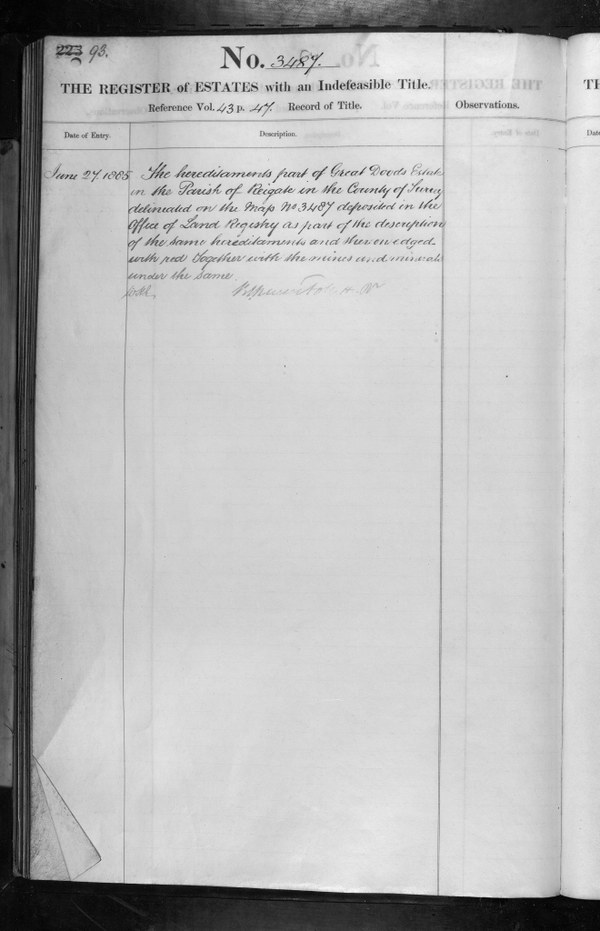 223 93.
No. 3487.
THE REGISTER of ESTATES with an Indefeasible Title.
Reference Vol. 43 p. 47. Record of Title.
Observations.
Date of Entry.
Description.
June 27. 1885
The hereditaments part of Great Doods Estate
in the Parish of Reigate in the County of Surrey
delineated on the Map No 3487 deposited in the
Office of Land Registry as part of the description
of the same hereditaments and thereon edged
with red Together with the mines and minerals
under the same